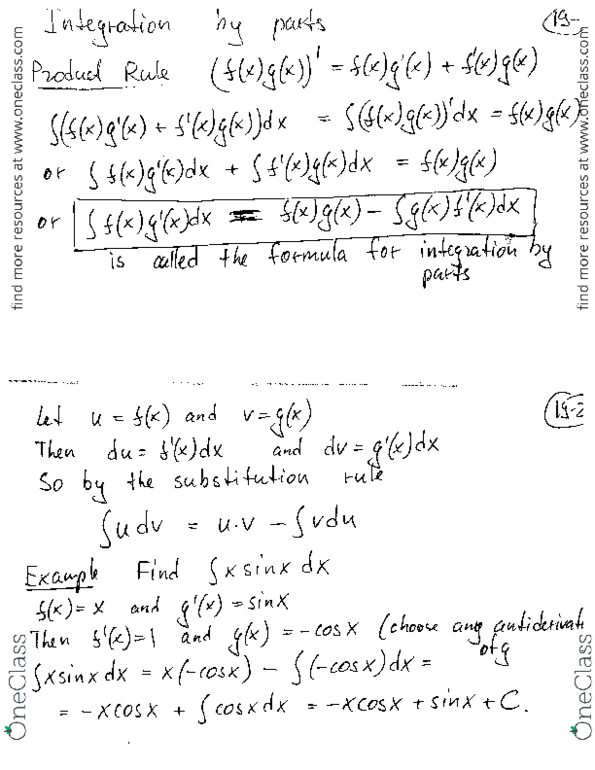 Integration by parts
(19-
Product Rule (f(x)g(x))' = f(x)g'(x) + f'(x)g(x)
∫(f(x)g'(x) + f'(x)g(x))dx = ∫(f(x)g(x))'dx = f(x)g(x)
or ∫f(x)g'(x)dx + ∫f'(x)g(x)dx = f(x)g(x)
or ∫f(x)g'(x)dx = f(x)g(x) − ∫g(x)f'(x)dx
is called the formula for integration by
parts
find more resources at www.oneclass.com
find more resources at www.oneclass.com
19-2
Let u = f(x) and v = g(x)
Then du = f'(x)dx and dv = g'(x)dx
So by the substitution rule
∫u dv = u·v − ∫v du
Example Find ∫x sinx dx
f(x) = x and g'(x) = sinx
Then f'(x)=1 and g(x) = −cosx (choose any antiderivati
of g
∫x sinx dx = x(−cosx) − ∫(−cosx)dx =
= −x cosx + ∫cosx dx = −x cosx + sinx + C.
OneClass
OneClass